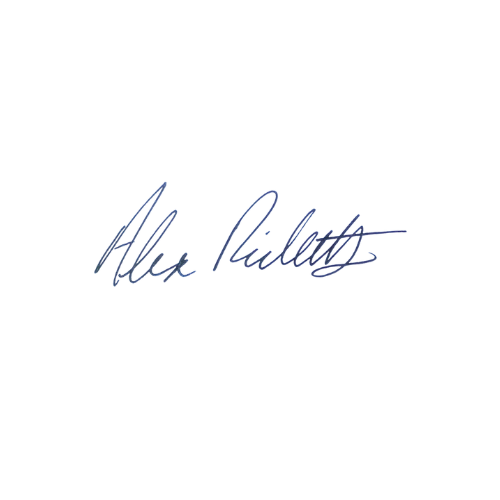 Alex Ricketts